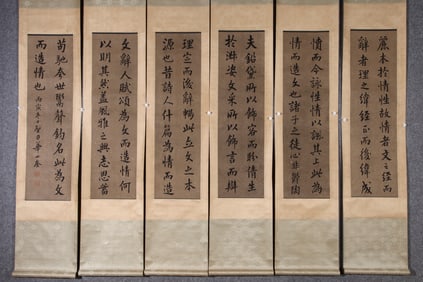 麗本於情性故情者文之經而
辭者理之緯經正而後緯成
憤而吟詠性情以諷其上此為
情而造文也諸子之徒心非鬱陶
夫鉛黛所以飾容而盼倩生
於淑姿文采所以飾言而辯
理定而後辭暢此立文之本
源也昔詩人什篇為情而造
文辭人賦頌為文而造情何
以明其然蓋風雅之興志思蓄
苟馳夸世鬻聲釣名此為文
而造情也 丙寅